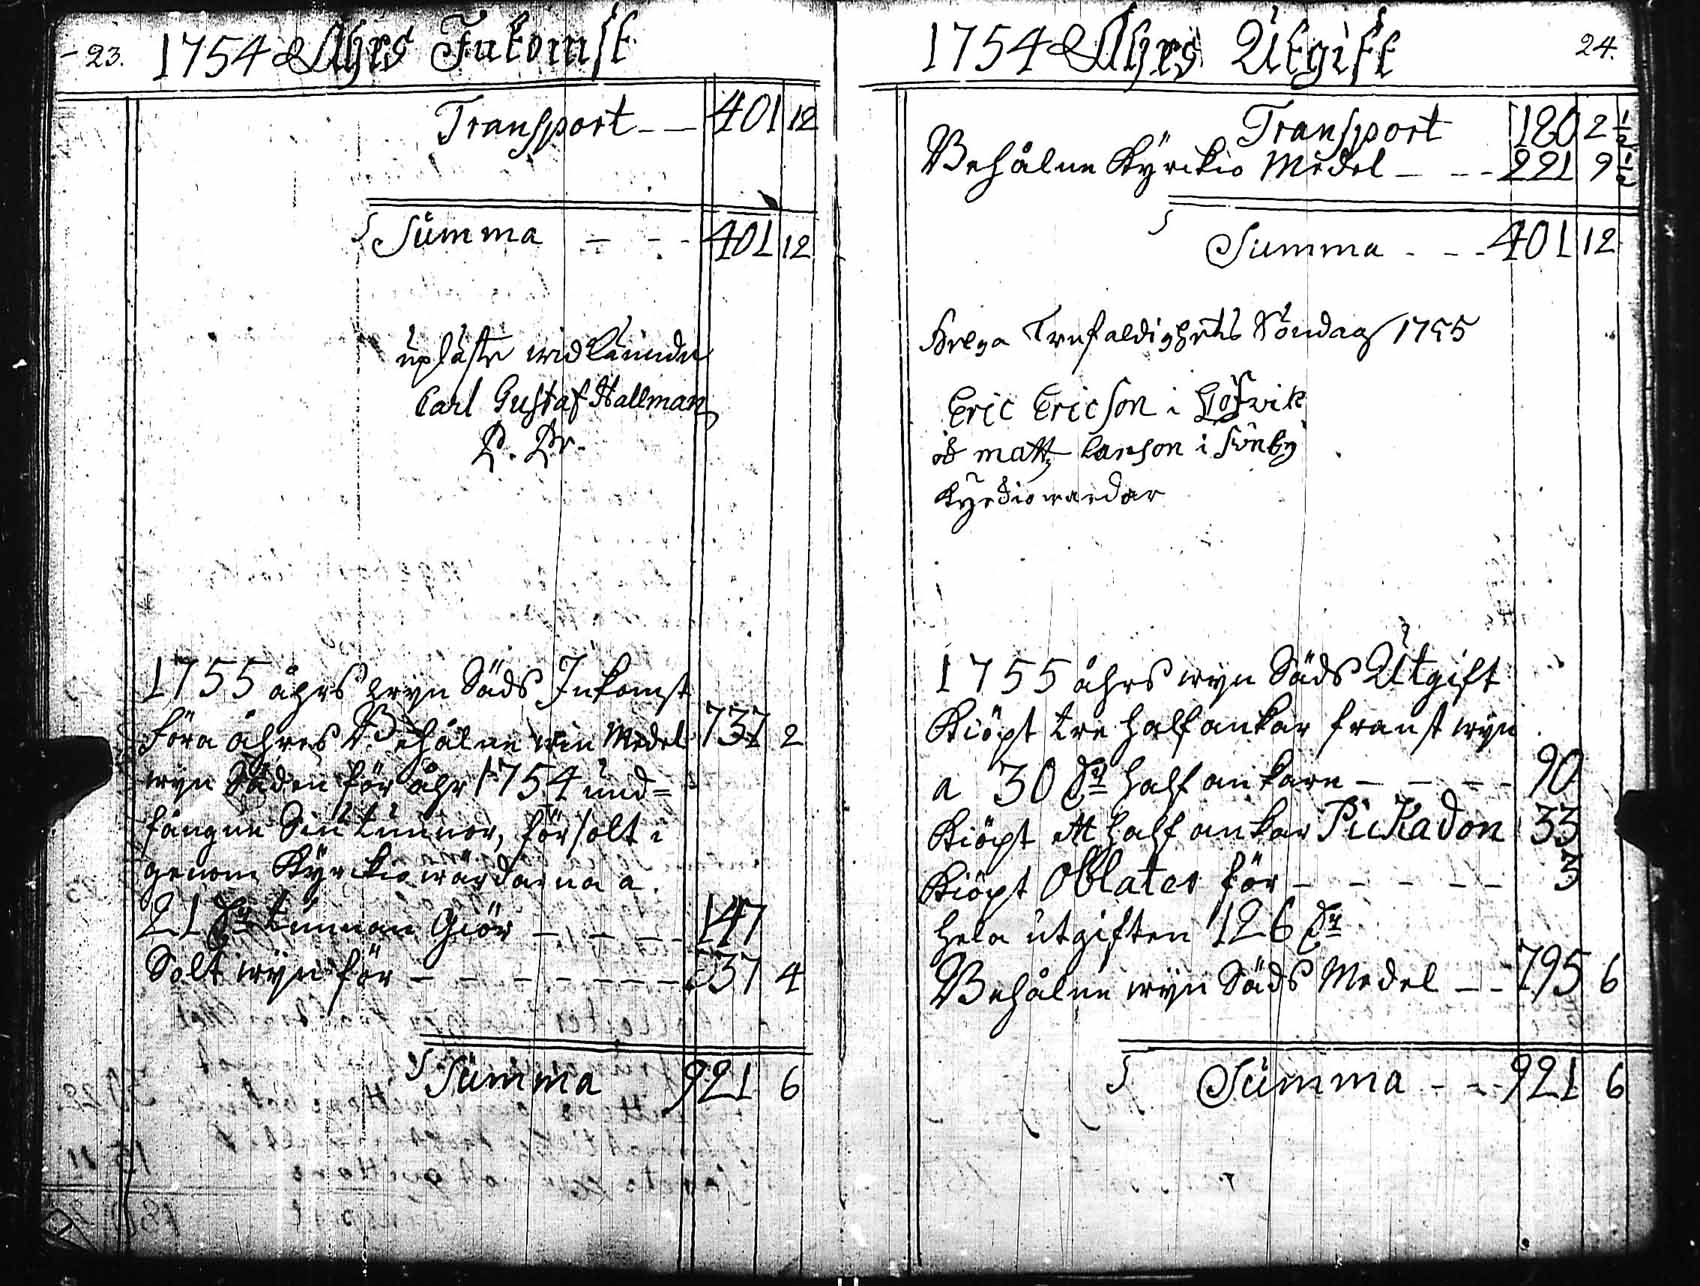 23. 1754 Åhrs Inkomst
Transport 401 12
Summa 401 12
upläste wid
Carl Gustaf Hallman
P. Pr.
1755 åhrs wyn Säds Inkomst
Föra åhres Behålne win Medel 737 2
wyn Säden för åhr 1754 und=
fångne Siu tunnor, försolt i
genom Kyrckiowärdarna a
21 Dr tunnan Giör 147
Solt wyn för 37 4
Summa 921 6
1754 Åhrs Utgift 24.
Transport 180 2 1/2
Behålne Kyrckio Medel 221 9 1/2
Summa 401 12
Helga Trefaldighets Söndag 1755
Eric Ericson i
och matts Larson i
Kyrckiowardar
1755 åhrs wyn Säds Utgift
Kiöpt tre halfankar franst wyn
a 30 Dr halfankare 90
Kiöpt ett halfankar Pickadon 33
Kiöpt Oblater för 3
hela utgiften 126 Dr
Behålne wyn Säds Medel 795 6
Summa 921 6